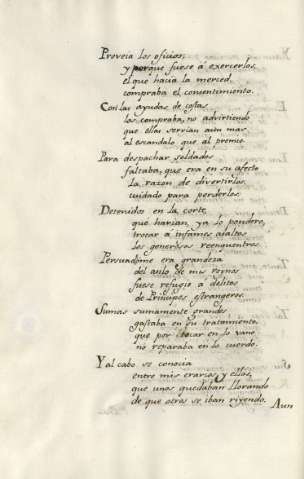 Proveia los oficios,
y porque fuese á exercerlos
el que hacia la merced,
compraba el consentimiento.
Con las ayudas de costas
los compraba, no advirtiendo
que ellas servian aun mas
al escandalo que al premio.
Para despachar soldados
faltaba, que era en su afecto
la razon de divertirlos
cuidado para perderlos.
Detenidos en la corte
que harian, ya lo pondero,
trocar á infames asaltos
los generosos reenquentros.
Persuadime era grandeza
del asilo de mis reynos
fuese refugio á delitos
de Principes estrangeros.
Sumas sumamente grandes
gastaba en su tratamiento,
que por tocar en lo vano
no reparaba en lo cuerdo.
Y al cabo se conocia
entre mis erarios, y ellos,
que unos quedaban llorando
de que otros se iban riyendo.
Aun